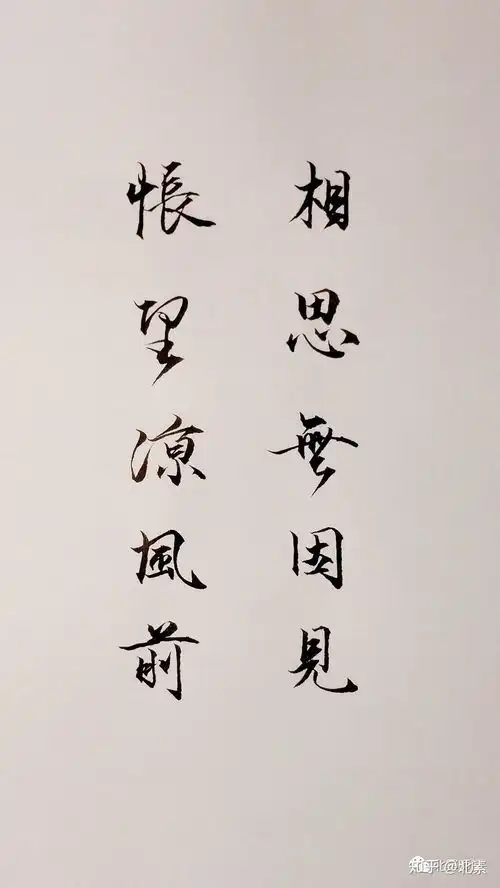 相思無因見
悵望涼風前
知乎 @北素